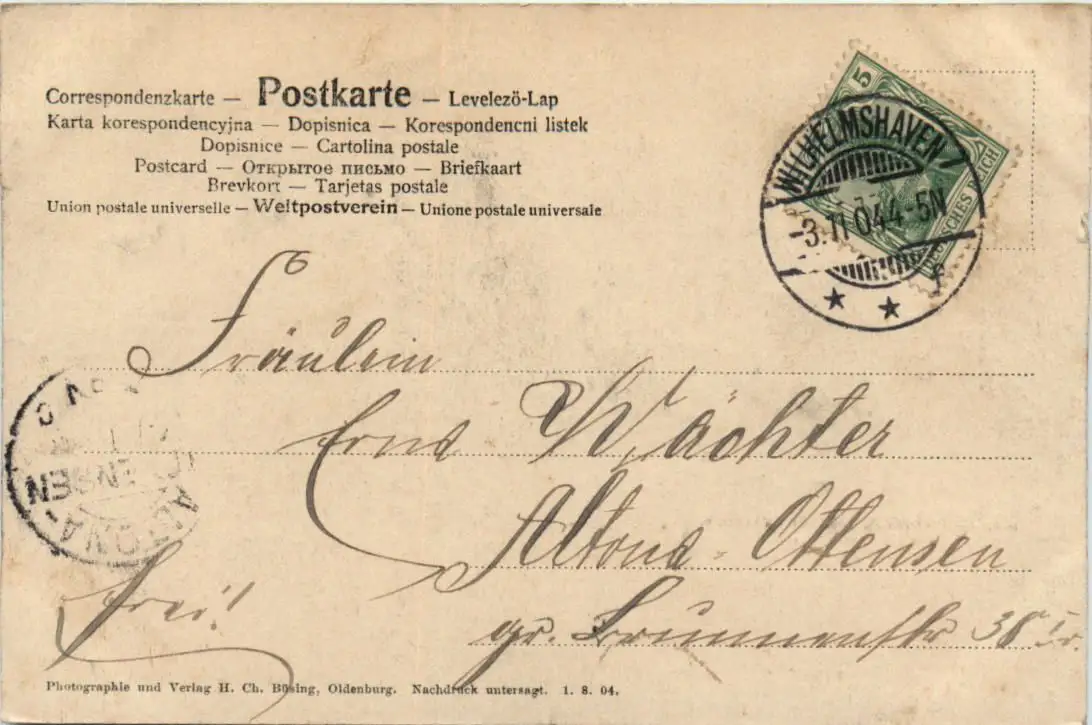 Correspondenzkarte — Postkarte — Levelezö-Lap
Karta korespondencyjna — Dopisnica — Korespondencni listek
Dopisnice — Cartolina postale
Postcard — Открытое письмо — Briefkaart
Brevkort — Tarjetas postale
Union postale universelle — Weltpostverein — Unione postale universale
5
DEUTSCHES REICH
WILHELMSHAVEN
-3.11.04.4-5N
* * f
Fräulein
Erna Wächter
Altona-Ottensen
gr. Brunnenstr 38 I r.
frei!
ALTONA-
Photographie und Verlag H. Ch. Büsing, Oldenburg. Nachdruck untersagt. 1. 8. 04.